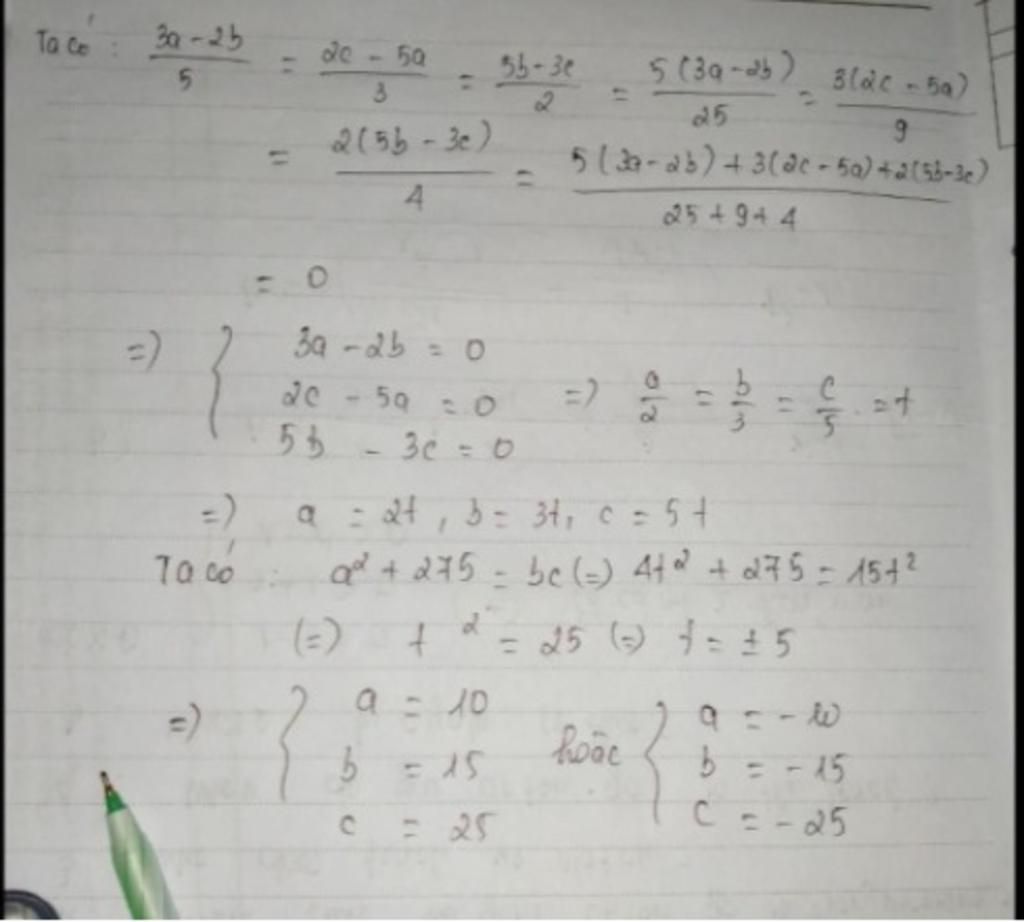 Ta có : (3a - 2b)/5 = (2c - 5a)/3 = (5b - 3c)/2 = 5(3a - 2b)/25 = 3(2c - 5a)/9
= 2(5b - 3c)/4 = (5(3a - 2b) + 3(2c - 5a) + 2(5b - 3c))/(25 + 9 + 4)
= 0
=> { 3a - 2b = 0
2c - 5a = 0 => a/2 = b/3 = c/5 = t
5b - 3c = 0
=> a = 2t, b = 3t, c = 5t
Ta có : a² + 275 = bc (=) 4t² + 275 = 15t²
(=) t² = 25 (=) t = ± 5
=> { a = 10 hoặc { a = -10
b = 15 b = -15
c = 25 c = -25